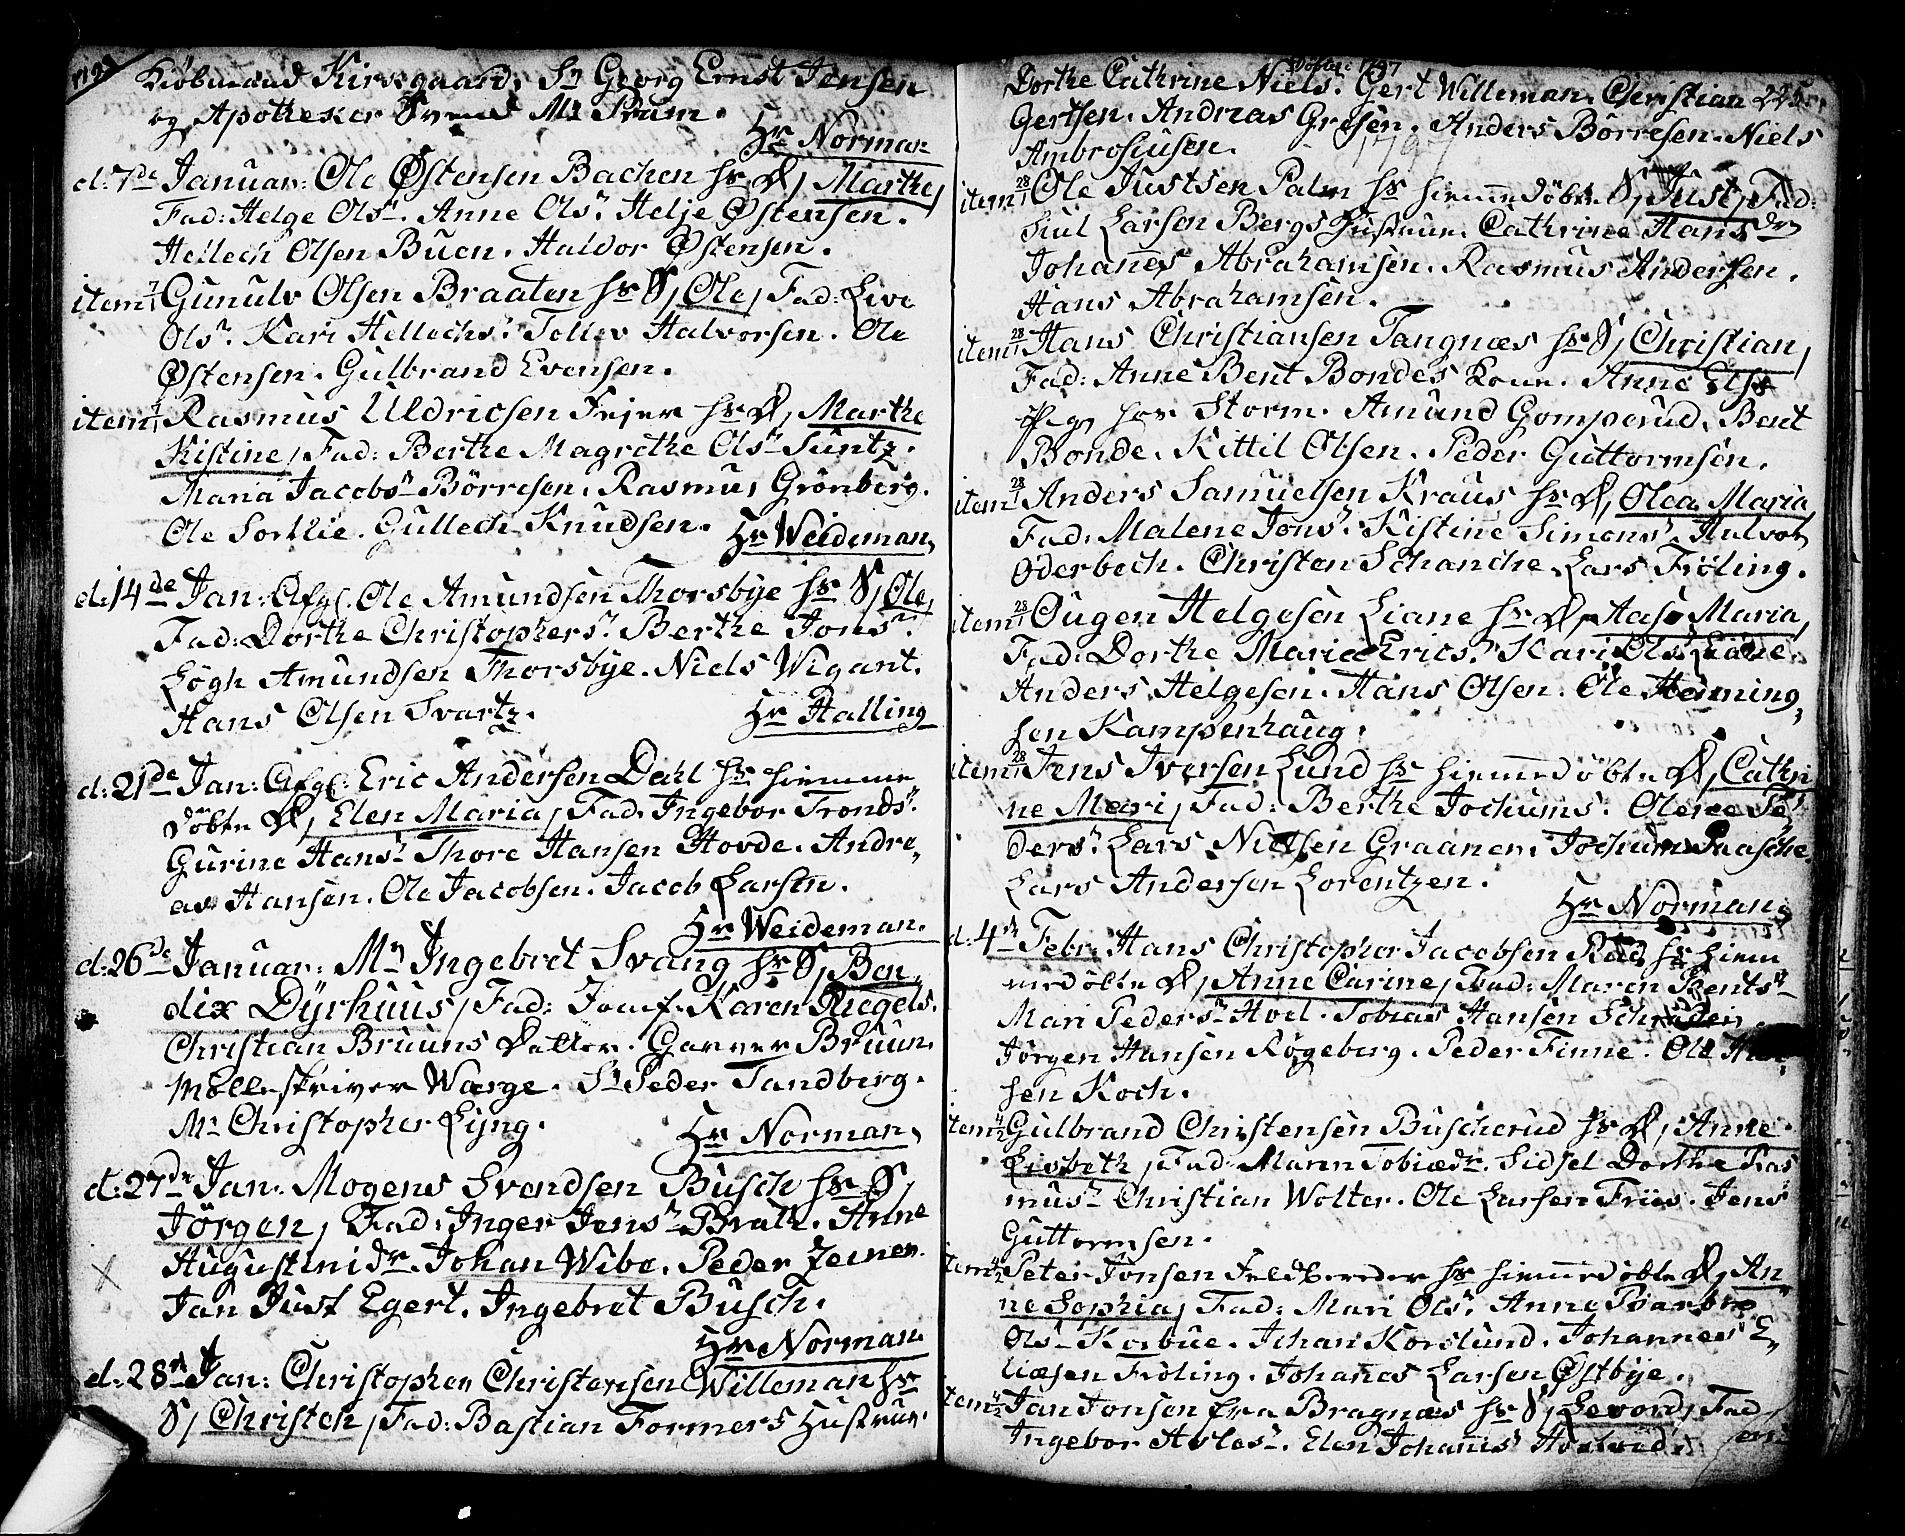 Kiøbmand Kirsegaard, Sr Georg Ernst Jensen
og Apotheker Svend Mr Prum.
Hr Norman
d: 7de Januar: Ole Østensen Bachen hs D, Marthe,
Fad: Helge Olsn. Anne Olsn Helje Østensen.
Hellech Olsen Buen. Haldor Østensen.
item 7/1 Gunulv Olsen Braaten hs S, Ole, Fad: Live
Olsn. Kari Hellechsn. Tollev Halvorsen. Ole
Østensen. Gulbrand Evensen.
item 7/1 Rasmus Uldricsen Fejer hs D, Marthe
Kistine, Fad: Berthe Magrethe Olsn Suntz.
Maria Jacobsn Börresen. Rasmus Grönberg.
Ole Sorllie. Gullech Knudsen.
Hr Weideman,
d: 14de Jan: Afgl. Ole Amundsen Thorsbye hs S, Ole,
Fad: Dorthe Christophersn. Berthe Jonsn.
Løgh Amundsen Thorsbye. Niels Wigant.
Hans Olsen Svartz.
Hr Halling
d: 21de Jan: Afgl: Eric Andersen Dahl hs hiemme
döbte D, Elen Maria, Fad: Ingebor Trondsn.
Gurine Hansn Thore Hansen Hovde. Andre,
as Hansen. Ole Jacobsen. Jacob Larsen.
Hr Weideman.
d: 26de Januar: Mr Ingebret Svang hs S, Ben,
dix Dyrhuus, Fad: Jomf. Karen Riegels.
Christian Bruuns Datter. Garver Bruun.
Mölleskriver Warge. Sr Peder Tandberg.
Mr Christopher Lyng.
Hr Norman,
d: 27de Jan: Mogens Svendsen Busch hs S,
Jörgen, Fad: Inger Jensn Bratt. Anne
Augustinidr. Johan Wibe. Peder Jeiner.
Jan Just Egert. Ingebret Busch.
Hr Norman
d: 28n Jan: Christopher Christensen Willeman hs
S, Christen, Fad: Bastian Formers Hustrue.
Döbte: 1797
Dorthe Cathrine Niels. Gert Willeman. Christian 225
Gertsen. Andreas Gresen. Anders Börresen. Niels
Ambrosiusen.
item 28/1 Ole Justsen Palm hs hiemmedöbte S, Just, Fad:
Juul Larsen Bergs Hustrue. Cathrine Hansdr
Johanes Abrahamsen. Rasmus Andersen.
Hans Abrahamsen.
item 28/1 Hans Christiansen Tangnæs hs S, Christian,
Fad: Anne Bent Bondes Kone. Anne Elsz
Pige hos Storm. Amund Gomperud. Bent
Bonde. Kittil Olsen. Peder Guttormsen.
item 28/1 Anders Samuelsen Kraus hs D, Olea Maria,
Fad: Malene Jonsn. Kistine Simonsn. Halvor
Oderbech. Christen Schanche Lars Fröling.
item 28/1 Ougen Helgesen Liane hs D, Aase Maria,
Fad: Dorthe Maria Ericsn. Kari Olsn Liane.
Anders Helgesen. Hans Olsen. Ole Henning,
sen Kampenhaug.
item 28/1 Jens Iversen Lund hs hiemmedöbte D, Cathri
ne Mari, Fad: Berthe Jochums. Olene Pe,
dersn. Lars Nielsen Graaner. Jochum Paasche.
Lars Andersen Lorentzen.
Hr Norman,
d: 4de Febr: Hans Christopher Jacobsen Rød hs hiem
medöbte D, Anne Carine, Fad: Maren Bentsn
Mari Pedersn Hvel. Tobias Hansen Schrøder.
Jörgen Hansen Røgeberg. Peder Finne. Ole Han
sen Koch.
item 4/2 Gulbrand Christensen Buscherud hs D, Anne
Lisbeth, Fad: Maren Tobiædr. Sidsel Dorthe Ras
musn Christian Wolter. Ole Larsen Friis. Jens
Guttormsen.
item 4/2 Peter Jonsen Feldbereder hs hiemmedöbte D, An
ne Sophia, Fad: Mari Olsn. Anne Baarbro
Olsn Korbüe. Johan Korslund. Johannes E,
liæsen Fröling. Johanes Larsen Østbye.
item 4/2 Jan Jonsen fra Bragnæs hs S, Sevord, Fad,
Ingebor Atlesn. Elen Johanes